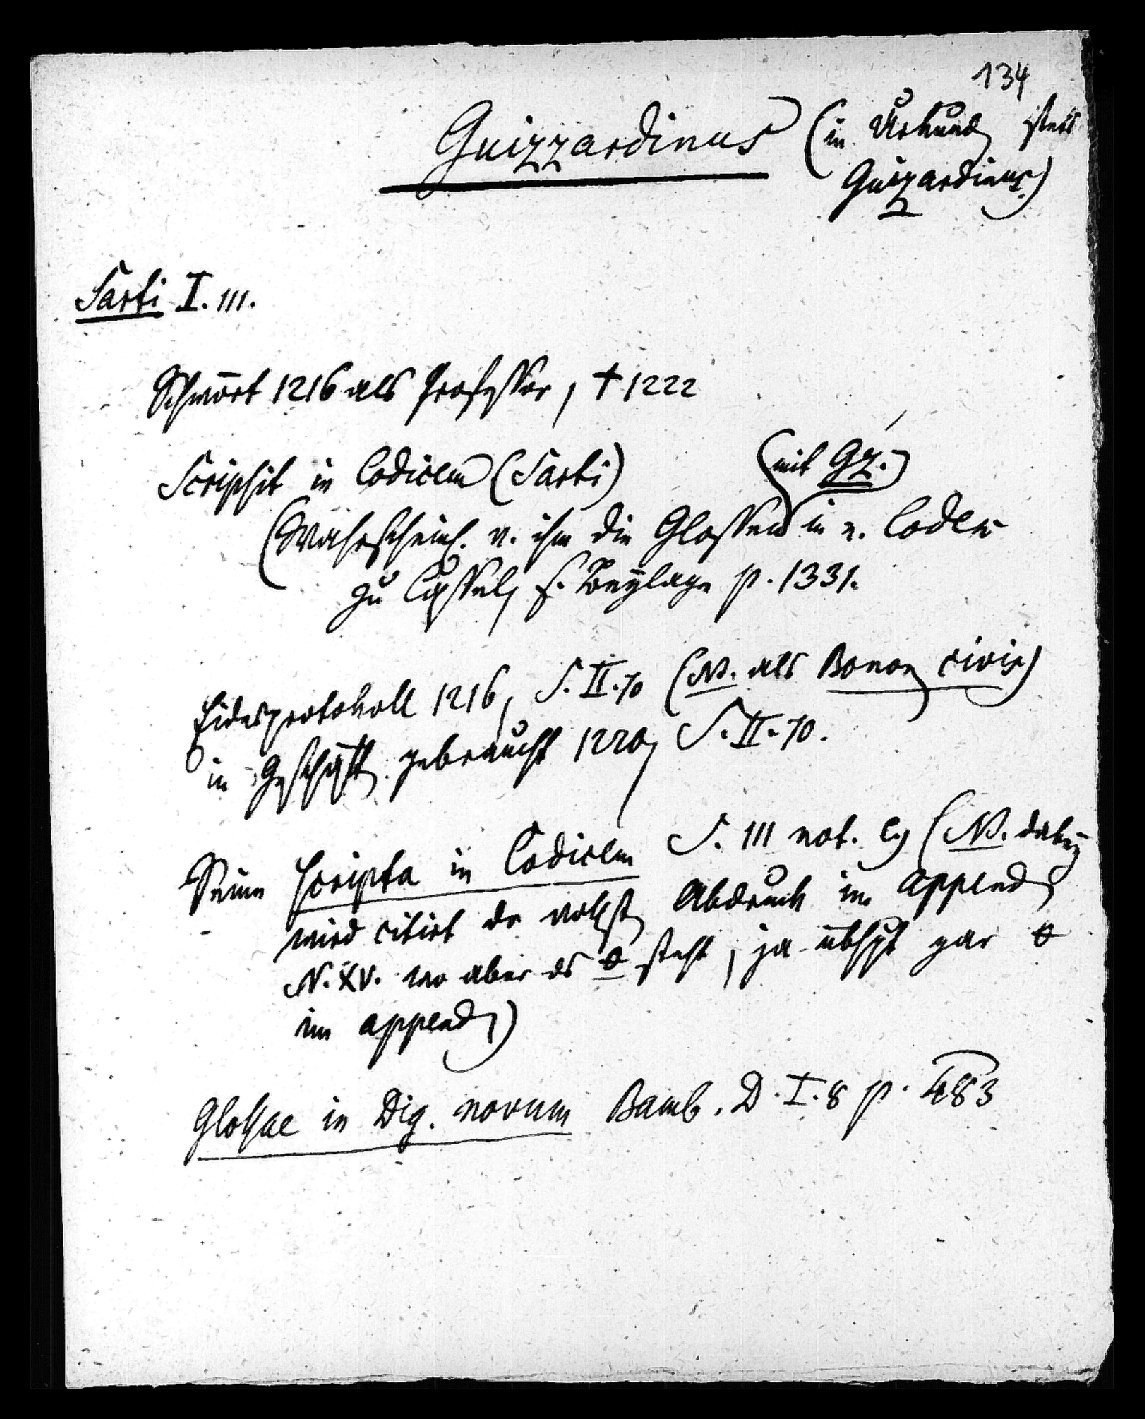 134
Guizzardinus (in Urkund. stets
Guizardinus.)
Sarti I. 111.
Schwört 1216 als Professor, † 1222
Scripsit in Codicem (Sarti) (mit Gz.)
(Wahrscheinl. v. ihm die Glossen in e. Codex
zu Cassel, s. Beylage p. 1331.
Eidesprotokoll 1216, S. II. 70 (N. als Bonon. civis)
in Geschäft. gebraucht 1220, S. II. 70.
Seine scripta in Codicem S. 111 not. e, (N. dabey
wird citirt der Abdruck im append.
N. XV. wo aber es 0 steht, ja gar 0
im append.)
Glossae in Dig. novum Bamb. D. I. 8 p. 483